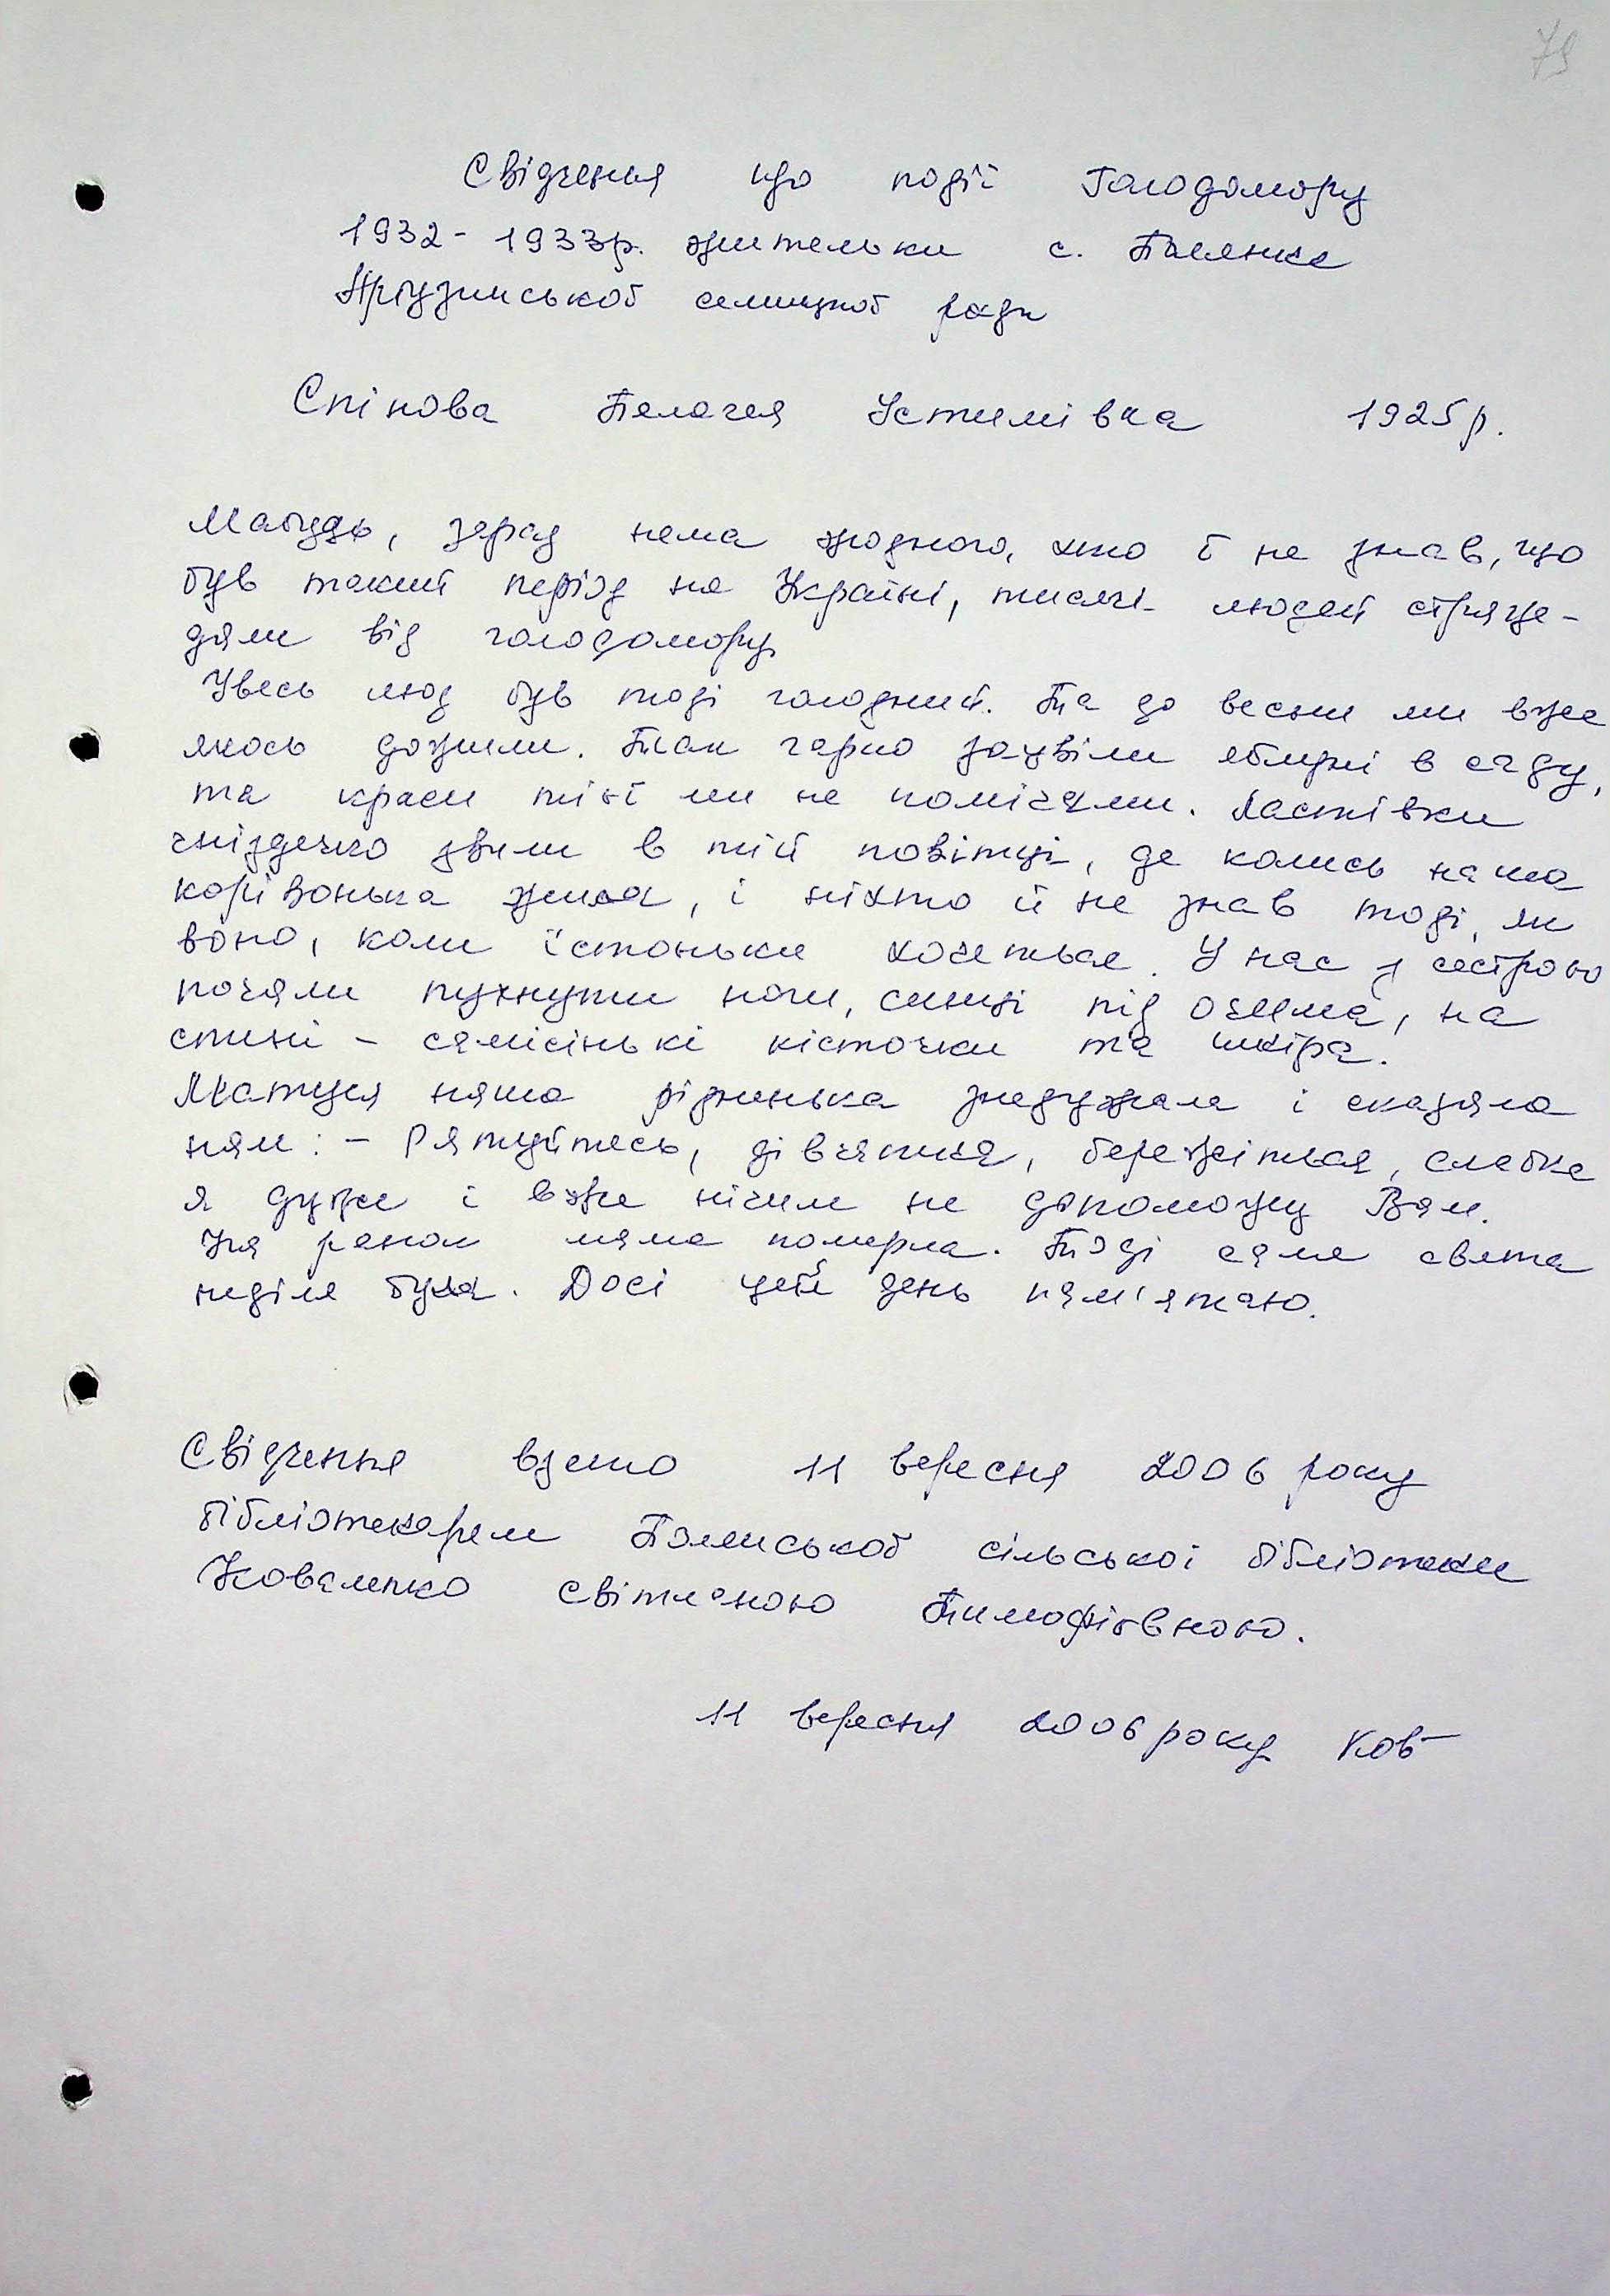 79
Свідчення про події Голодомору
1932-1933р. жительки с. Полянка
Арбузинської селищної ради
Спікова Пелагея Устимівна 1925р.
Мабудь, зараз нема жодного, хто б не знав, що
був такий період на Україні, тисячі людей стражда-
дали від голодомору
Увесь люд був тоді голодний. Та до весни ми вже
якось дожили. Так гарно зацвіли яблуні в саду,
та краси тієї ми не помічали. Ластівки
гніздечко звили в тій повітці, де колись наша
корівонька жила, і ніхто й не знав тоді, як
воно, коли їстоньки хочеться. У нас з сестрою
почали пухнути ноги, синці під очима, на
спині - самісінькі кісточки та шкіра.
Матуся наша рідненька знедужала і сказала
нам: - Рятуйтесь, дівчатка, бережіться, слабка
я дуже і вже нічим не допоможу Вам.
На ранок мама померла. Тоді саме свята
неділя була. Досі цей день пам'ятаю.
Свідчення взято 11 вересня 2006 року
бібліотекарем Полянської сільської бібліотеки
Коваленко Світланою Тимофіївною.
11 вересня 2006 року Ков